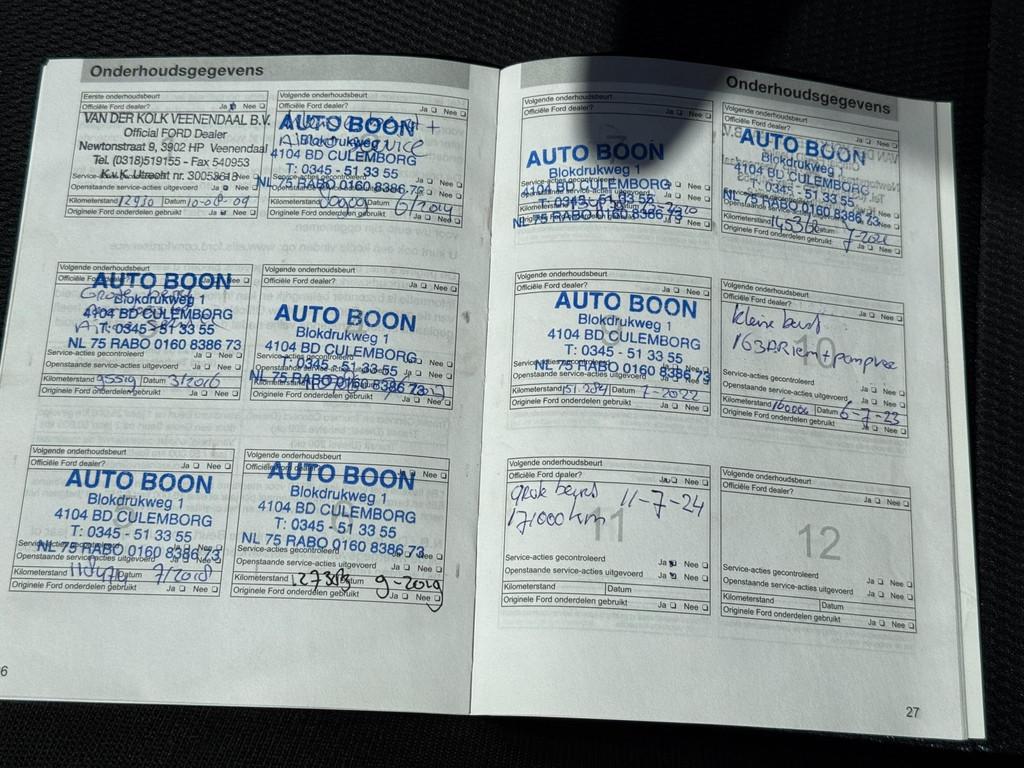 Onderhoudsgegevens
Eerste onderhoudsbeurt
Officiële Ford dealer? Ja Nee
VAN DER KOLK VEENENDAAL B.V.
Official FORD Dealer
Newtonstraat 9, 3902 HP Veenendaal
Tel. (0318)519155 - Fax 540953
K.v.K. Utrecht nr. 30058618
Openstaande service-acties uitgevoerd Ja Nee
Kilometerstand 12930 Datum 10-08-09
Originele Ford onderdelen gebruikt Ja Nee
Volgende onderhoudsbeurt
Officiële Ford dealer? Ja Nee
AUTO BOON
Blokdrukweg 1
4104 BD CULEMBORG
T: 0345 - 51 33 55
NL 75 RABO 0160 8386 73
Kilometerstand Datum 6/2014
Originele Ford onderdelen gebruikt Ja Nee
Volgende onderhoudsbeurt
Grote beurt
AUTO BOON
Blokdrukweg 1
4104 BD CULEMBORG
T: 0345 - 51 33 55
NL 75 RABO 0160 8386 73
Service-acties gecontroleerd Ja Nee
Openstaande service-acties uitgevoerd Ja Nee
Kilometerstand Datum 3/2016
Originele Ford onderdelen gebruikt Ja Nee
Volgende onderhoudsbeurt
Officiële Ford dealer? Ja Nee
AUTO BOON
Blokdrukweg 1
4104 BD CULEMBORG
T: 0345 - 51 33 55
NL 75 RABO 0160 8386 73
Originele Ford onderdelen gebruikt Ja Nee
Volgende onderhoudsbeurt
Officiële Ford dealer? Ja Nee
AUTO BOON
Blokdrukweg 1
4104 BD CULEMBORG
T: 0345 - 51 33 55
NL 75 RABO 0160 8386 73
Openstaande service-acties uitgevoerd Ja Nee
Kilometerstand Datum 7/2018
Originele Ford onderdelen gebruikt Ja Nee
Volgende onderhoudsbeurt
AUTO BOON
Blokdrukweg 1
4104 BD CULEMBORG
T: 0345 - 51 33 55
NL 75 RABO 0160 8386 73
Service-acties gecontroleerd
Openstaande service-acties uitgevoerd Ja Nee
Kilometerstand Datum 9-2019
Originele Ford onderdelen gebruikt Ja Nee
Onderhoudsgegevens
Volgende onderhoudsbeurt
Officiële Ford dealer? Ja Nee
AUTO BOON
Blokdrukweg 1
4104 BD CULEMBORG
T: 0345 - 51 33 55
NL 75 RABO 0160 8386 73
Originele Ford onderdelen gebruikt Ja Nee
Volgende onderhoudsbeurt
Officiële Ford dealer? Ja Nee
AUTO BOON
Blokdrukweg 1
4104 BD CULEMBORG
T: 0345 - 51 33 55
NL 75 RABO 0160 8386 73
Kilometerstand Datum
Originele Ford onderdelen gebruikt Ja Nee
Volgende onderhoudsbeurt
Officiële Ford dealer? Ja Nee
9
AUTO BOON
Blokdrukweg 1
4104 BD CULEMBORG
T: 0345 - 51 33 55
NL 75 RABO 0160 8386 73
Openstaande service-acties uitgevoerd Ja Nee
Kilometerstand 151.284 Datum 7-2022
Originele Ford onderdelen gebruikt Ja Nee
Volgende onderhoudsbeurt
Officiële Ford dealer? Ja Nee
kleine beurt
10
Service-acties gecontroleerd Ja Nee
Openstaande service-acties uitgevoerd Ja Nee
Kilometerstand 160000 Datum 6-7-23
Originele Ford onderdelen gebruikt Ja Nee
Volgende onderhoudsbeurt
Officiële Ford dealer? Ja Nee
grote beurt 11-7-24
171000 km
11
Service-acties gecontroleerd Ja Nee
Openstaande service-acties uitgevoerd Ja Nee
Kilometerstand Datum
Originele Ford onderdelen gebruikt Ja Nee
Volgende onderhoudsbeurt
Officiële Ford dealer? Ja Nee
12
Service-acties gecontroleerd Ja Nee
Openstaande service-acties uitgevoerd Ja Nee
Kilometerstand Datum
Originele Ford onderdelen gebruikt Ja Nee
27